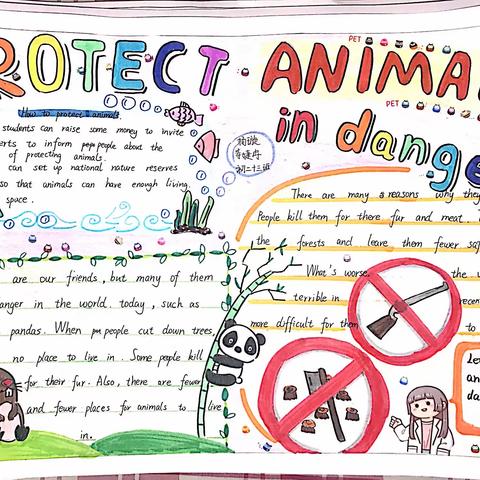 ROTECT ANIMA
in dange
PET
PET
How to protect animals
students can raise some money to invite
erts to inform people about the
of protecting animals.
can set up national nature reserves
so that animals can have enough living
space.
初二十三班
are our friends, but many of them
anger in the world. today, such as
pandas. When people cut down trees,
no place to live in. Some people kill
for their fur. Also, there are fewer
and fewer places for animals to live
in.
There are many reasons why they
People kill them for there fur and meat.
the forests and leave them fewer sa
What's worse, the w
terrible in recen
more difficult for them to
an
da